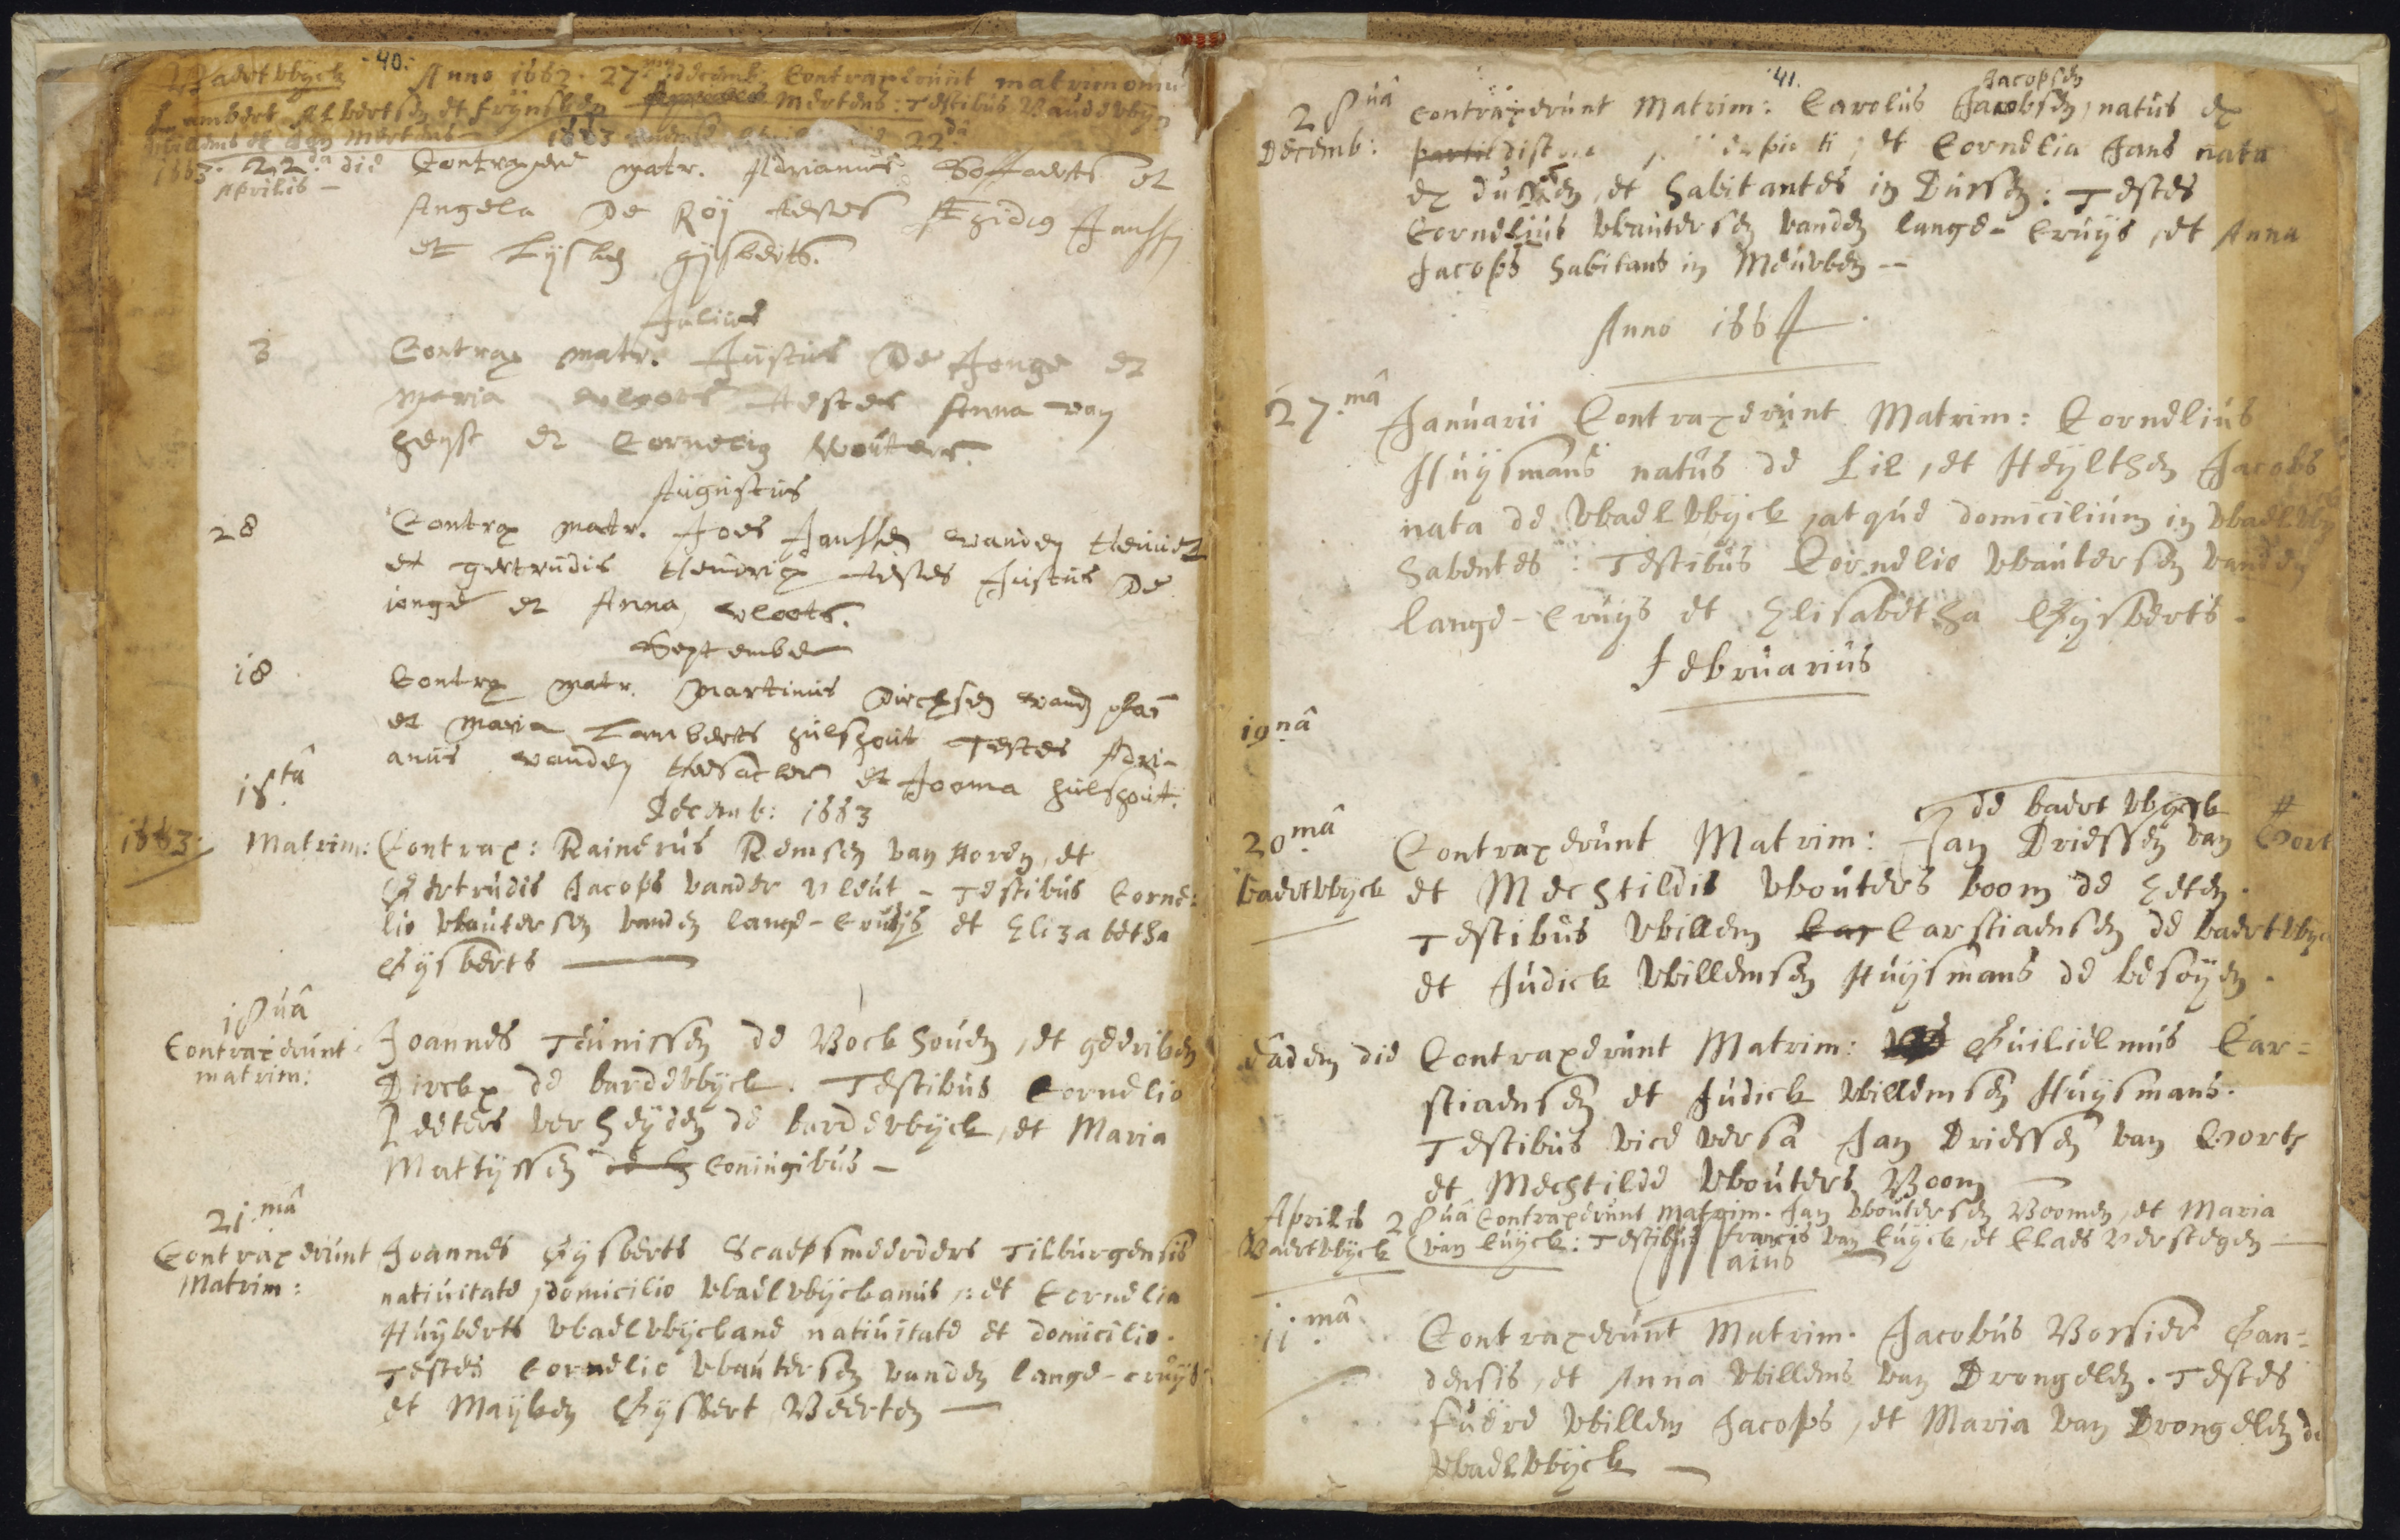 40.
Baertwyck Anno 1663. 27 decemb. Contraxerunt matrimoniu
Lambert Albertsen et Eryntken Mertens: Testibus Bauderwyn
Willems et Jan Mertens 1663 22da
1663. 22da die Contraxere matr. Adrianus Soffaerts et
Aprilis –
Angela De Roÿ testes Ægidius Janssen
et Lijsken gijsberts.
Julius
3 Contrax matr. Justus De Jonge et
Maria vloots testes Anna van
heyst et Cornelia Wouters.
Augustus
28 Contrax matr. Joes Janssen vanden Heuvel
et gertrudis Hendrix testes Justus De
jonge et Anna vloots.
September
18 Contrax matr. Martinus Dircksen vand
et Maria Lamberts hulshout Testes Adri-
anus vanden Hesacker et Jooma hulshout.
16.ta Decemb: 1663
1663. Matrim: Contrax: Rainerus Remsen van Horen, et
Gertrudis Jacops vander vleut – Testibus Corne:
lio Wautersen vanden lange-Cruÿs et Elizabetha
Gijsberts —
18uâ
Contraxerunt matrim: Joannes Teunissen de Bockhouen, et geeriken
Dirckx de bardewyck. Testibus Cornelio
Peeters verheÿden de bardewijck, et Maria
Mattijssen Coniugibus –
21.mâ
Contraxerunt Matrim: Joannes Gijsberts Scaepsmeerders Tilburgensis
natiuitate, domicilio Waelwijckanus, et Cornelia
Huijberts Waelwijckane natiuitate et domicilio.
Testes Cornelio Wautersen vanden lange-cruijs
et Maijken Gijsbert Veerten —
41.
28uâ Decemb: contraxerunt Matrim: Carolus Jacobsen Jacopsen, natus ex
et Cornelia Jans nata
ex dussen, et habitantes in Dussen: Testes
Cornelius Wautersen vanden lange-Cruijs, et Anna
Jacops habitans in Meuwen —
Anno 1664.
27.mâ Januarii Contraxerunt Matrim: Cornelius
Huÿsmans natus de Lil, et Heÿlthen Jacobs
nata de Waelwijck, atque domicilium in Waelwy
habentes: Testibus Cornelio Wautersen vanden
lange-Cruijs et Elisabetha Gijsberts.
Februarius
19nâ
20mâ de baertwyck
Contraxerunt Matrim: Jan Driessen van Gort
baertwyck et Mechtildis Wouters boom de Eeten.
Testibus Willem Carstiaensen de baertwyc
et Judick Willemsen Huijsmans de besoijen.
eâdem die Contraxerunt Matrim: Guilielmus Car=
stiaensen et Judick Willemsen Huijsmans.
Testibus vice versâ Jan Driessen van Gorts
et Mechtilde Wouters Boom —
Aprilis 28uâ Contraxerunt Matrim. Jan Woutersen Boomen, et Maria
Baertwyck van Cuÿck: Testibus Francis van Cuyck, et Claes Verstegen —
Maius
11.mâ Contraxerunt Matrim. Jacobus Bossier Gan=
densis, et Anna Willems van Drongelen. Testes
fuere Willem Jacops, et Maria van Drongelen de
Waelwijck —